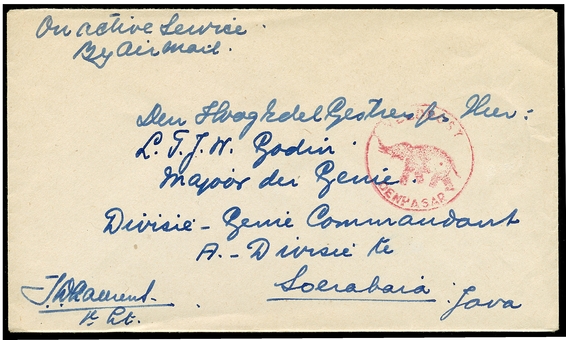 On active Service
By Air Mail.
Den HoogEdelGestrengen Heer:
L. T. J. W. Bodin.
Majoor der Genie.
Divisie-Genie Commandant
A.-Divisie te
Soerabaia
Java
DENPASAR
1e Lt.